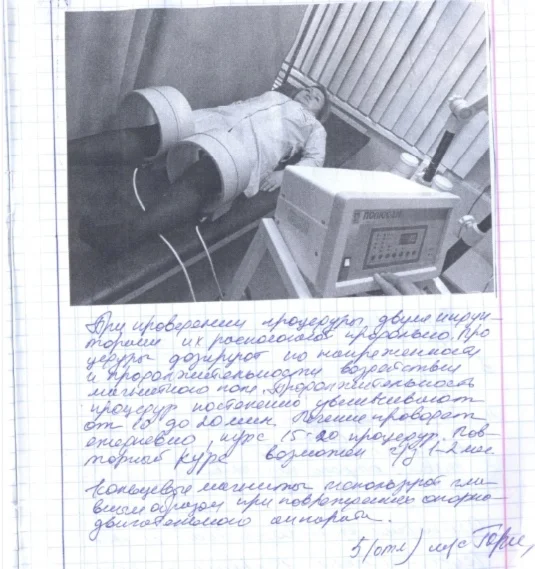 ПОЛЮС-2М
При проведении процедуры двумя индук-
торами их располагают продольно. Про
цедуры дозируют по напряженности
и продолжительности воздействия
магнитного поля. Продолжительность
процедур постепенно увеличивают
от 10 до 20 мин. Лечение проводят
ежедневно курс 15-20 процедур. Пов-
торный курс возможен ч/з 1-2 мес.
Кольцевые магниты используют гла-
вным образом при повреждениях опорно-
двигательного аппарата.
5 (отл) м/с